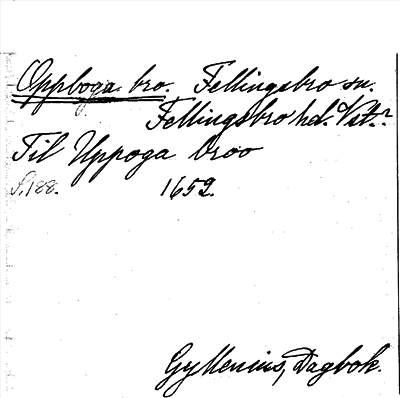 Oppboga bro. Fellingsbro sn.
Fellingsbro hd. Vstm?
Til Uppoga broo
S. 188. 1652.
Gyllenius, Dagbok.